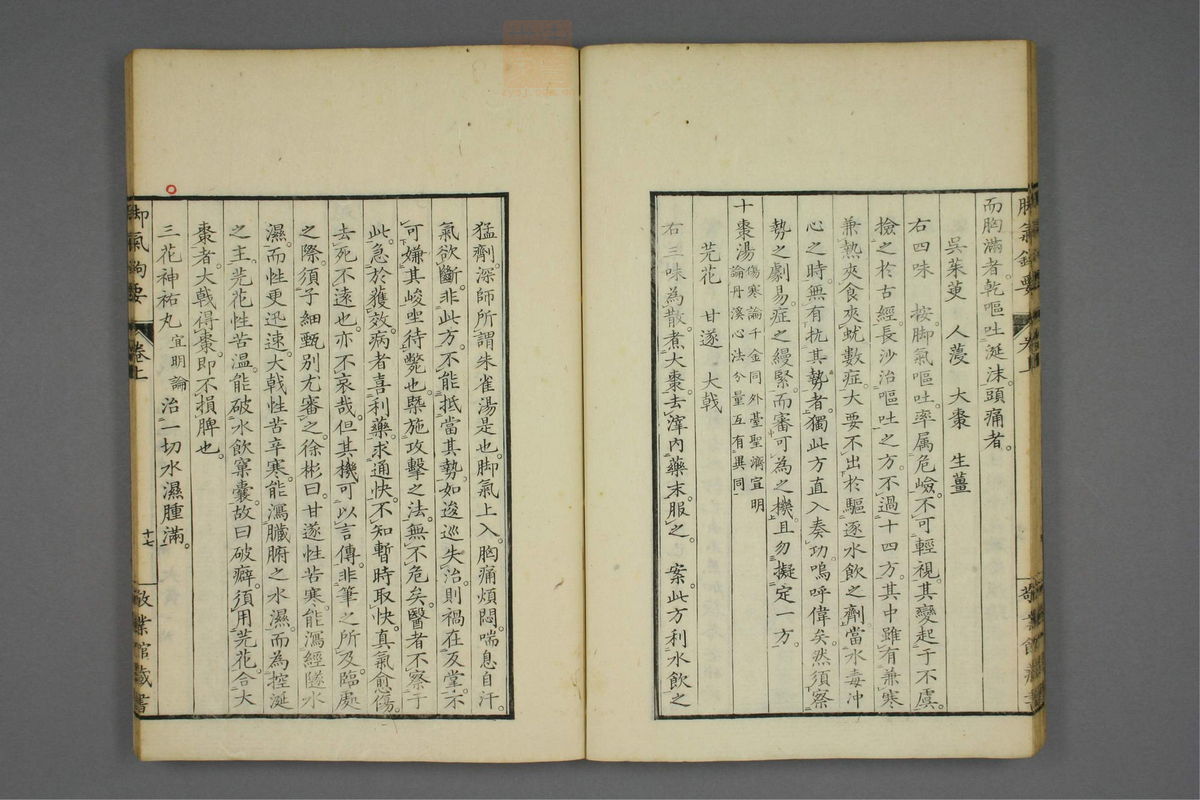 而胸滿者乾嘔吐涎沫頭痛者。
吳茱萸　人薓　大棗　生薑
右四味　按脚氣嘔吐率属危嶮不可輕視其變起于不虞。
撿之於古經長沙治嘔吐之方不過十四方其中雖有兼寒
兼熱夾食夾蚘數症大要不出於驅逐水飲之劑當水毒冲
心之時無有抗其勢者獨此方直入奏功嗚呼偉矣然須察
勢之劇易症之縵緊而審可為之機且勿擬定一方。
十棗湯傷寒論千金同外臺聖濟宣明
論丹溪心法分量互有異同
芫花　甘遂　大戟
右三味為散煮大棗去滓內藥末服之　案此方利水飲之
脚氣鉤要　卷上
猛劑深師所謂朱雀湯是也脚氣上入胸痛煩悶喘息自汗。
氣欲斷非此方不能抵當其勢如逡巡失治則禍在反掌不
可嫌其峻坐待斃也槩施攻擊之法無不危矣醫者不察于
此急於獲效病者喜利藥求通快不知暫時取快真氣愈傷。
去死不遠也亦不哀哉但其機可以言傳非筆之所及臨處
之際須子細甄別尤審之徐彬曰甘遂性苦寒能瀉經隧水
濕而性更迅速大戟性苦辛寒能瀉臟腑之水濕而為控涎
之主芫花性苦溫能破水飲窠囊故曰破癖須用芫花合大
棗者大戟得棗即不損脾也
三花神祐丸宜明論治一切水濕腫滿。
十七